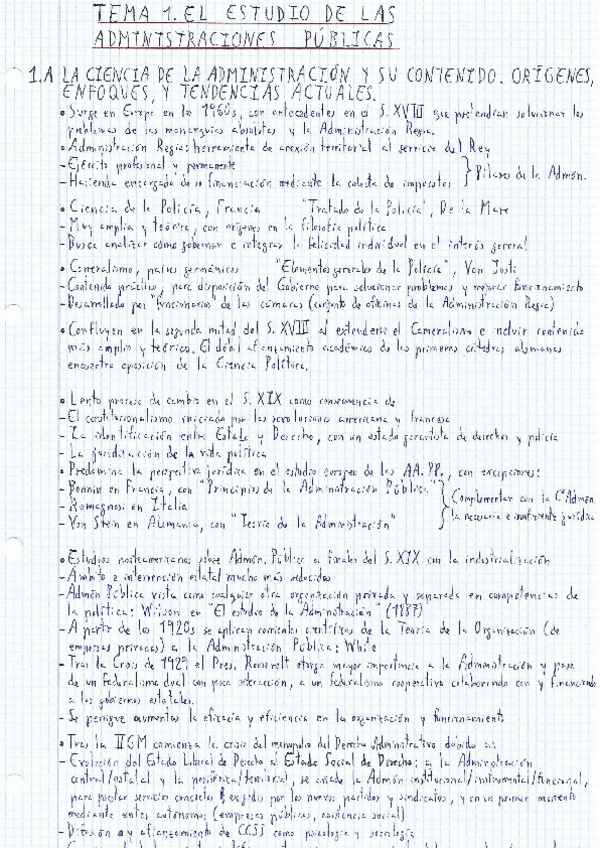 TEMA 1. EL ESTUDIO DE LAS
ADMINISTRACIONES PÚBLICAS
1.A LA CIENCIA DE LA ADMINISTRACIÓN Y SU CONTENIDO. ORÍGENES,
ENFOQUES, Y TENDENCIAS ACTUALES.
• Surge en Europa en los 1960s, con antecedentes en el S. XVIII que pretendían solucionar los
problemas de las monarquías absolutas y la Administración Regia.
• Administración Regia: herramienta de conexión territorial al servicio del Rey
- Ejército profesional y permanente
- Hacienda encargada de su financiación mediante la colecta de impuestos } Pilares de la Admón.
• Ciencia de la Policía, Francia "Tratado de la Policía", De la Mare
- Muy amplia y teórica, con orígenes en la filosofía política
- Busca analizar cómo gobernar e integrar la felicidad individual en el interés general
• Cameralismo, países germánicos "Elementos generales de la Policía", Von Justi
- Contenido práctico, para disposición del Gobierno para solucionar problemas y mejorar funcionamiento
- Desarrollado por "funcionarios" de las cámaras (conjunto de oficinas de la Administración Regia)
• Confluyen en la segunda mitad del S. XVIII al extenderse el Cameralismo e incluir contenido
más amplio y teórico. El débil afianzamiento académico de las primeras cátedras alemanas
encuentra oposición de la Ciencia Política.
• Lento proceso de cambio en el S. XIX como consecuencia de
- El constitucionalismo iniciado por las revoluciones americana y francesa
- La identificación entre Estado y Derecho, con un estado garantista de derechos y policía
- La juridización de la vida política
• Predomina la perspectiva jurídica en el estudio europeo de las AA.PP., con excepciones:
- Bonnin en Francia, con "Principios de la Administración Pública"
- Romagnosi en Italia
- Von Stein en Alemania, con "Teoría de la Administración" } Complementar con la Cª Admón.
la necesaria e insuficiente jurídica
• Estudios norteamericanos sobre Admón. Pública a finales del S. XIX con la industrialización
- Ámbito e intervención estatal mucho más reducidos
- Admón Pública vista como cualquier otra organización privada y separada en competencias de
la política: Wilson en "El estudio de la Administración" (1887)
- A partir de los 1920s se aplican corrientes científicas de la Teoría de la Organización (de
empresas privadas) a la Administración Pública: White
- Tras la Crisis de 1929 el Pres. Roosevelt otorga mayor importancia a la Administración y pasa
de un federalismo dual con poca interacción, a un federalismo cooperativo colaborando con y financiando
a los gobiernos estatales.
- Se persigue aumentar la eficacia y eficiencia en la organización y funcionamiento
• Tras la IIGM comienza la crisis del monopolio del Derecho Administrativo debido a:
- Evolución del Estado Liberal de Derecho al Estado Social de Derecho: a la Administración
central/estatal y la periférica/territorial, se añade la Admón institucional/instrumental/funcional,
para prestar servicios concretos exigidos por los nuevos partidos y sindicatos, y en un primer momento
mediante entes autónomos (empresas públicas, asistencia social)
- Difusión y afianzamiento de CCSS como psicología y sociología